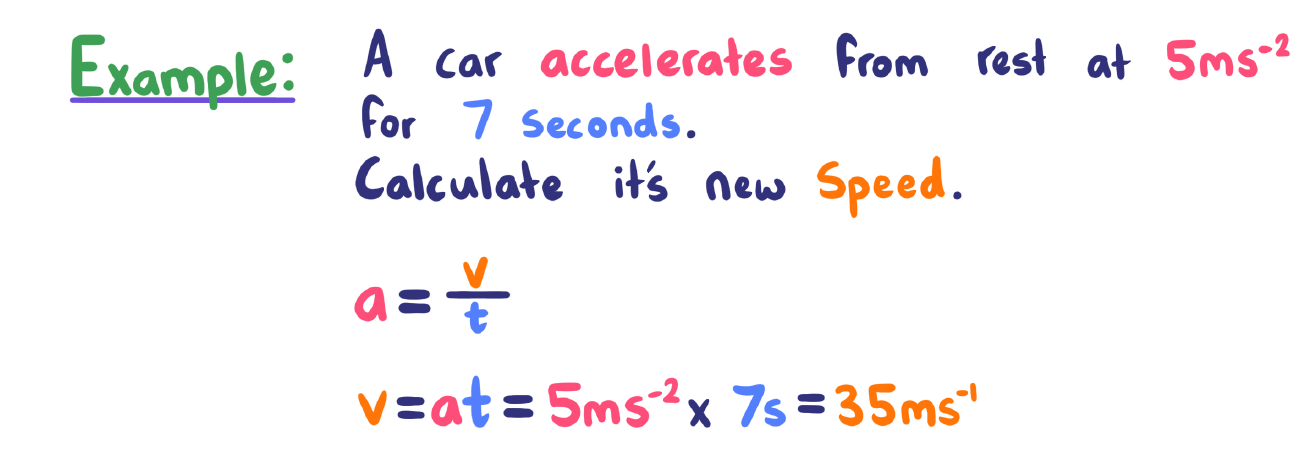 Example: A car accelerates from rest at 5ms⁻²
for 7 seconds.
Calculate it's new Speed.
a = v/t
v = at = 5ms⁻² x 7s = 35ms⁻¹